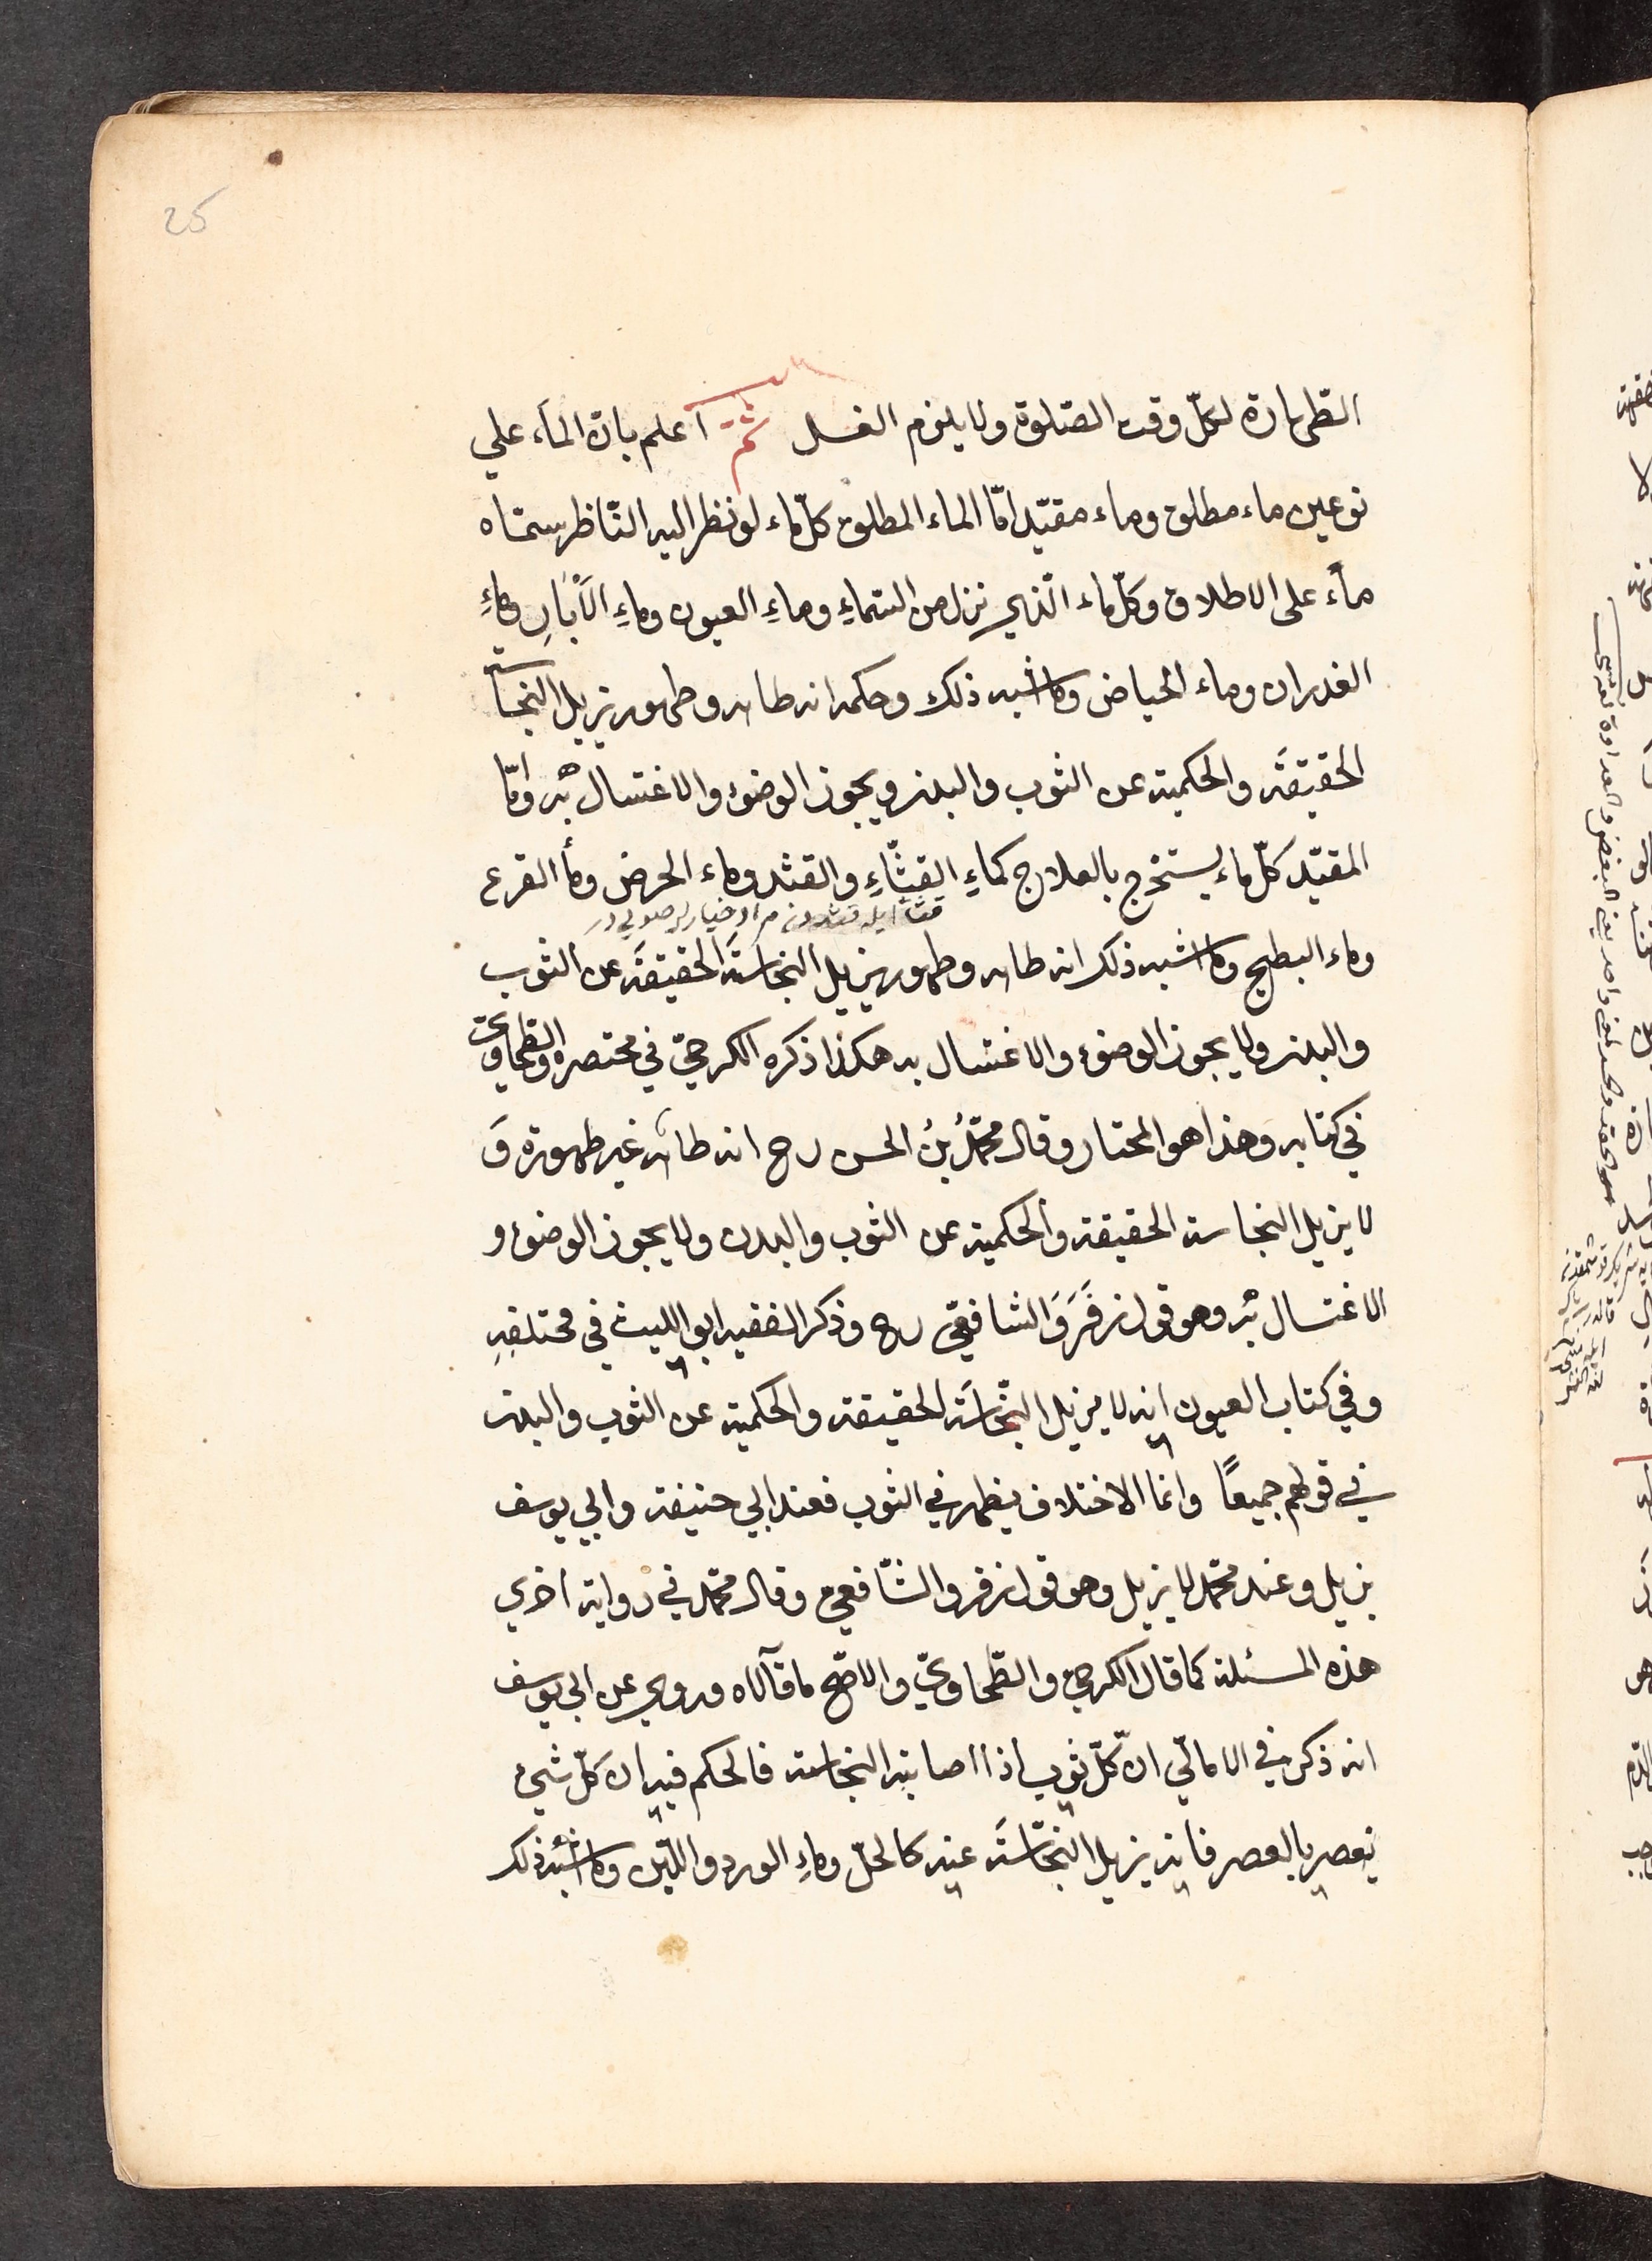 25
الطهارة لكلّ وقت الصّلوة ولا يلزم الغسل ثمّ اعلم بان الماء علي
نوعين ماء مطلق وماء مقيّد امّا الماء المطلق كلّ ماء لو نظر اليه النّاظر سمّاه
ماءً على الاطلاق وكلّ ماء الّذي نزل من السّماءِ وماءِ العيون وماءِ الآبارِ وماءِ
الغدران وماء الحياض وما اشبه ذلك وحكمه انه طاهر وطهور يزيل النجاسة
الحقيقة والحكمية عن الثوب والبدن ويجوز الوضوء والاغتسال به وامّا
المقيّد كلّ ماء يستخرج بالعلاج كماءِ القثّاءِ والقثد وماء الحرض وماء القرع
قثا ايله قثددن مراد خيار صويى در
وماء البطيخ وما اشبه ذلك انه طاهر وطهور يزيل النجاسة الحقيقة عن الثوب
والبدن ولا يجوز الوضوء والاغتسال به هكذا ذكره الكرخيّ في مختصره والطحاويّ
في كتابه وهذا هو المختار وقال محمّدُ بنُ الحسن رح انه طاهر غير طهورة وَ
لا يزيل النجاسة الحقيقة والحكمية عن الثوب والبدن ولا يجوز الوضوء و
الاغتسال به وهو قول زفَرَ وَالشافعيّ رح وذكر الفقيه ابو الليث في مختلفِهِ
وفي كتاب العيون انه لا يزيل النّجاسَة الحقيقة والحكمية عن الثوب والبدن
في قولهم جميعًا وانما الاختلاف يظهر في الثوب فعند ابي حنيفة وابي يوسف
يزيل وعند محمّد لا يزيل وهو قول زفر والشّافعي وقال محمّد في رواية اخرى
هذه المسئلة كما قال الكرخي والطّحاويّ والاصّح ما قالاه وروي عن ابي يوسف
انه ذكر في الامالّي انّ كلّ ثوب اذا اصابته النجاسة فالحكم فيه ان كلّ شيء
ينعصر بالعصر فانه يزيل النّجاسَة عنه كالخلّ وماءِ الورد واللّبن وما اشبه ذلك